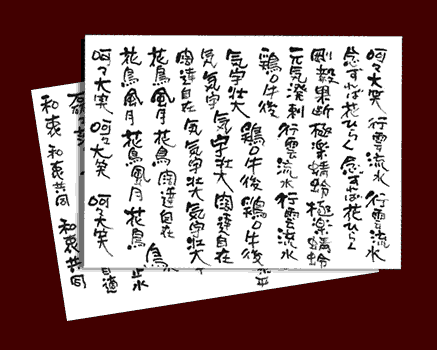 呵々大笑 行雲流水 行雲流水
念ずれば花ひらく 念ずれば花ひらく
剛毅果断 極楽蜻蛉 極楽蜻蛉
元気溌剌 行雲流水 行雲流水
鶏口牛後 鶏口牛後 鶏口牛後
気宇壮大 気宇壮大 闊達自在
気気宇 気気宇壮大 気宇壮大
闊達自在
花鳥風月 花鳥 闊達自在 鳥
花鳥風月 花鳥風月 花鳥
呵々大笑 呵々大笑 呵々大笑
止水
自適
和衷 和衷共同 和衷共同